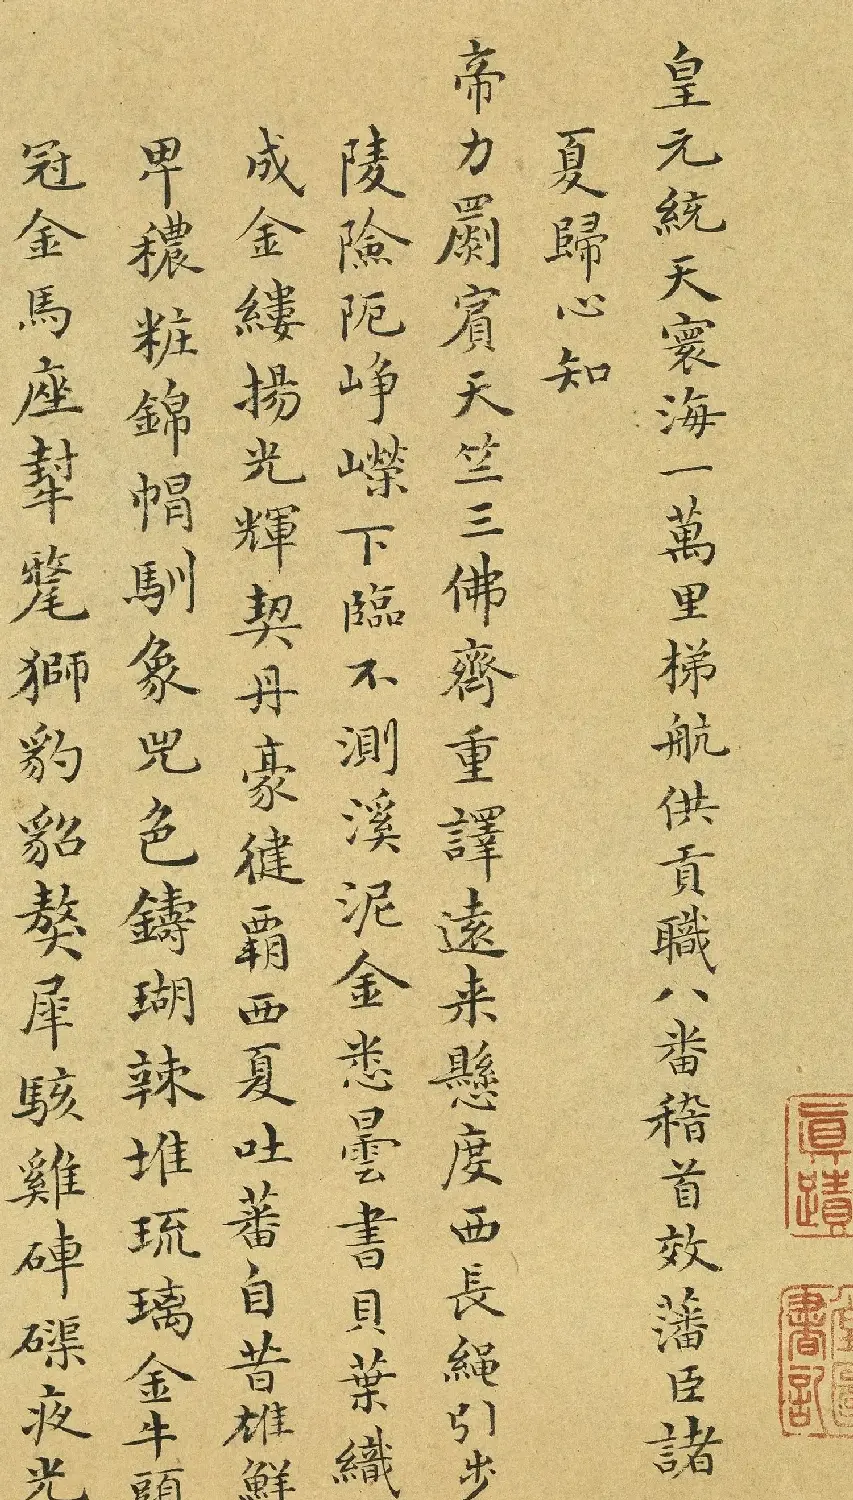 皇元統天寰海一萬里梯航供貢職八番稽首效藩臣諸
夏歸心知
帝力罽賓天竺三佛齊重譯遠来懸度西長繩引步
陵險阨崢嶸下臨不測溪泥金悉曇書貝葉織
成金縷揚光輝契丹豪健霸西夏吐蕃自昔雄鮮
卑穠粧錦帽馴象兕色鑄瑚辣堆琉璃金牛頭
冠金馬座犎氂獅豹貂獒犀駭雞硨磲夜光
真蹟
書記